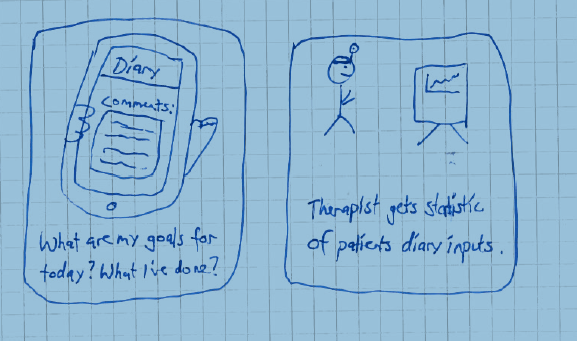 Diary
Comments:
What are my goals for
today? What I've done?
Therapist gets statistic
of patients diary inputs.